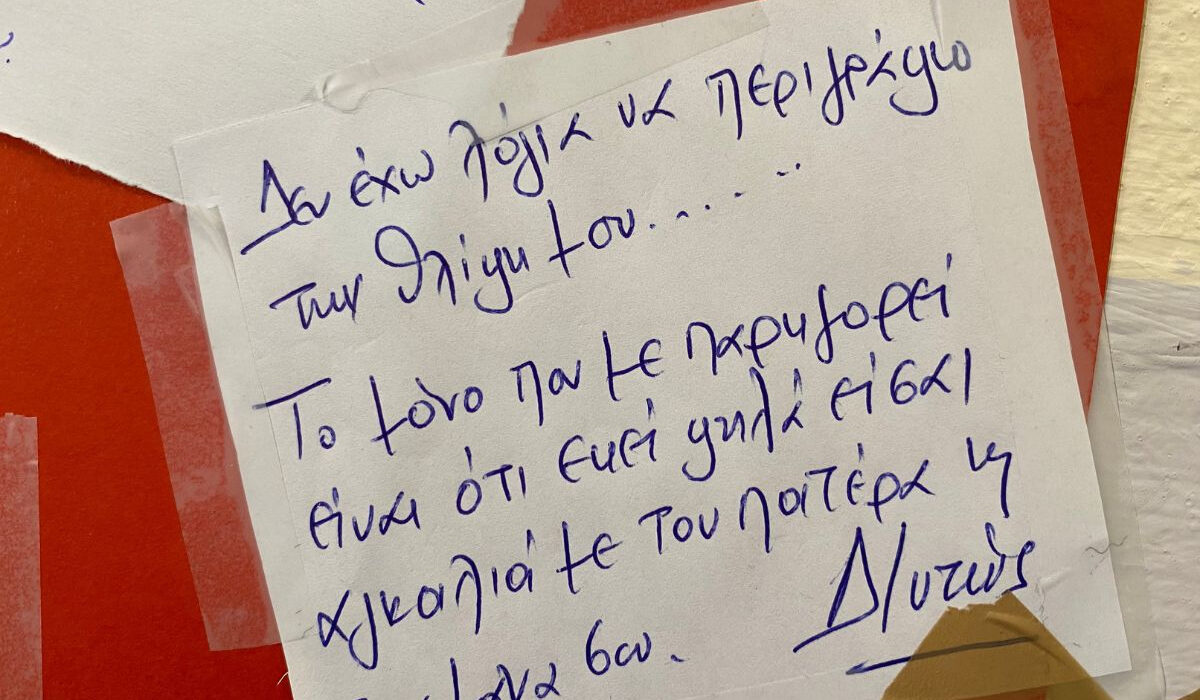 Δεν έχω λόγια να περιγράψω
την θλίψη μου.......
Το μόνο που με παρηγορεί
είναι ότι εκεί ψηλά είσαι
αγκαλιά με τον πατέρα κ
σου.